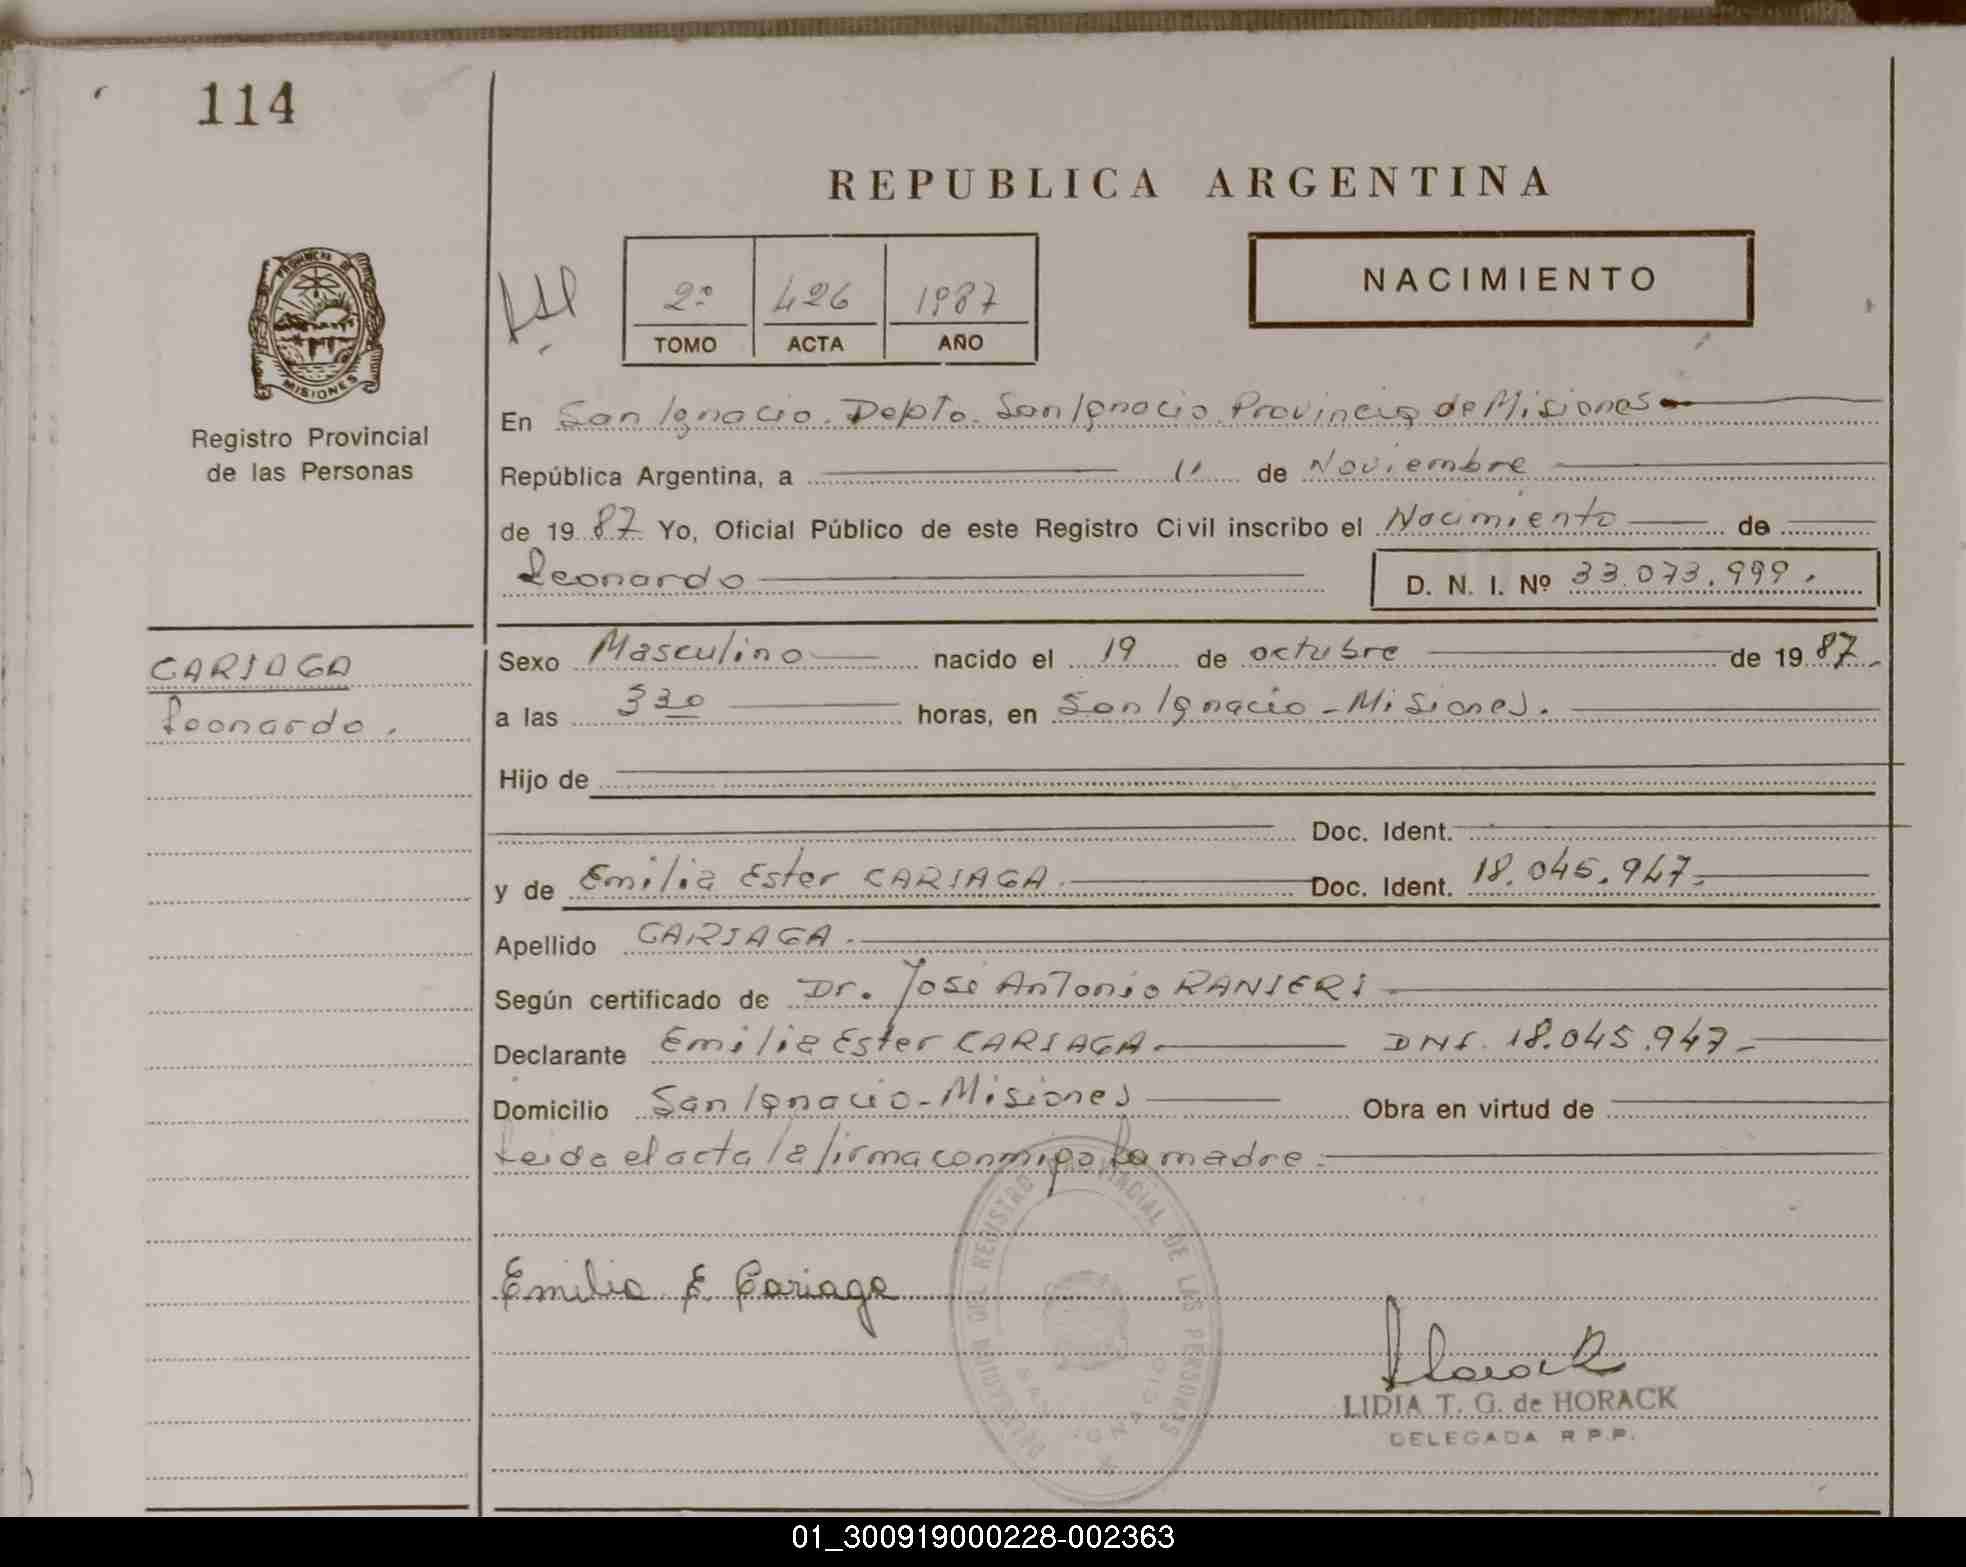 114
REPUBLICA ARGENTINA
PROVINCIA DE
MISIONES
Registro Provincial
de las Personas
2º 426 1987
TOMO ACTA AÑO
NACIMIENTO
En San Ignacio. Depto. San Ignacio. Provincia de Misiones
República Argentina, a 11 de Noviembre
de 19 87 Yo, Oficial Público de este Registro Civil inscribo el Nacimiento de
Leonardo D. N. I. Nº 33.073.999.
CARIAGA
Leonardo.
Sexo Masculino nacido el 19 de octubre de 19 87.
a las 3 30 horas, en San Ignacio - Misiones.
Hijo de
Doc. Ident.
y de Emilia Ester CARIAGA. Doc. Ident. 18.045.947.
Apellido CARIAGA.
Según certificado de Dr. José Antonio RANIERI
Declarante Emilia Ester CARIAGA. DNI. 18.045.947-
Domicilio San Ignacio - Misiones Obra en virtud de
Leida el acta la firma conmigo la madre.
Emilia E Cariaga
DELEGACION DEL REGISTRO PROVINCIAL DE LAS PERSONAS
SAN IGNACIO
Horack
LIDIA T. G. de HORACK
DELEGADA R.P.P.
01_300919000228-002363